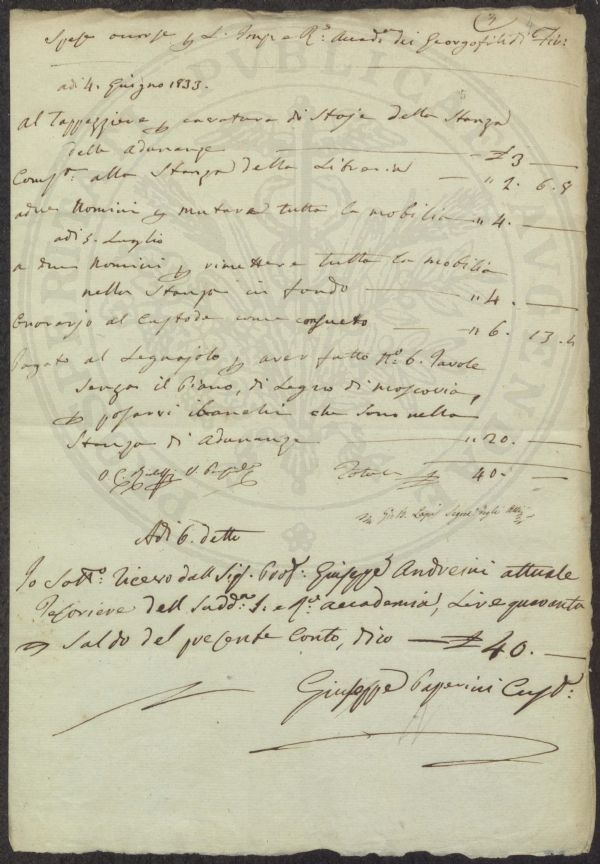 Spese occorse p L'Imp: e R: Accad: dei Georgofili di Fir:
adi 4. Giugno 1833.
al Tappezziere p levatura di Stoje della Stanza
delle Adunanze £ 3 —
Comp: alla Stanza della Libreria " 2. 6. 8
a due Uomini p mutare tutta la mobilia " 4. —
adi 5. Luglio
a due Uomini p rimettere tutta la mobilia
nella Stanza in fondo " 4. —
Onorario al Custode come consueto " 6. 13. 4
Pagato al Legnajolo p aver fatto N: 6. Tavole
senza il Piano, di Legno di Moscovia,
p posarvi i banchi che sono nella
Stanza di Adunanze " 20. —
Totale £ 40. —
Adi 6. detto
Io Sotto: Ricevo dall Sig: Prof: Giuseppe Andreini attuale
Tesoriere dell Sudd: I. e R: Accademia, Lire quaranta
p Saldo del presente Conto, dico £ 40. —
Giuseppe Paperini Cust:
PUBLICAE
AUGENDAE
PROSPERITATI